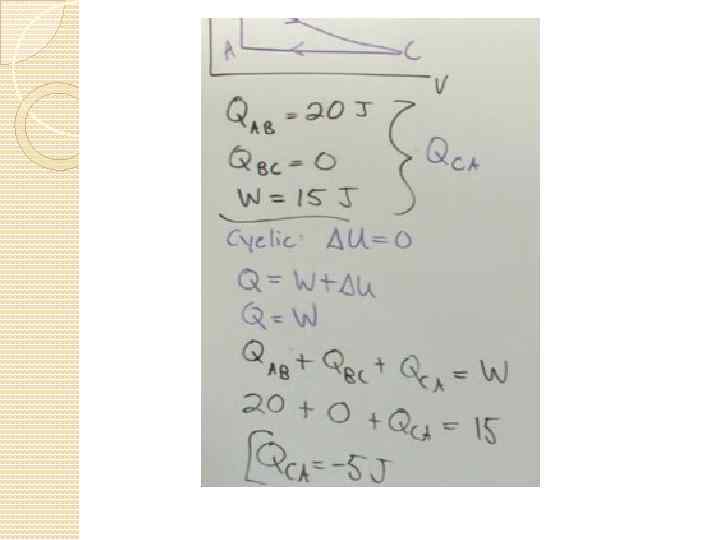 A C
V
Q_AB = 20 J
Q_BC = 0
W = 15 J
Q_CA
Cyclic: ΔU = 0
Q = W + ΔU
Q = W
Q_AB + Q_BC + Q_CA = W
20 + 0 + Q_CA = 15
Q_CA = -5 J